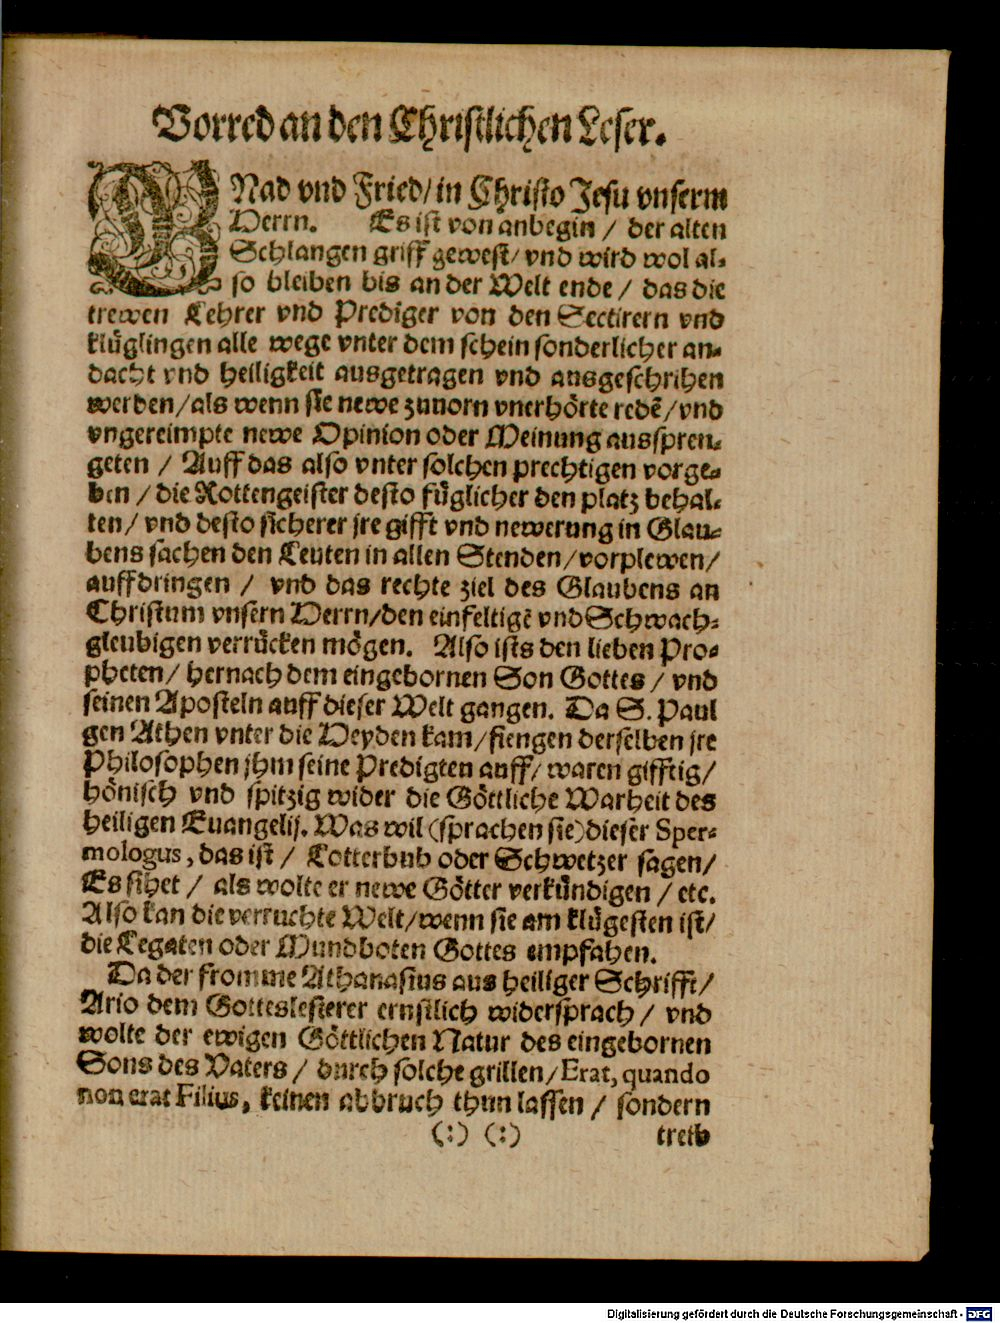 Vorred an den Christlichen Leser.
GNad vnd Fried/in Christo Jesu vnserm
Herrn. Es ist von anbegin / der alten
Schlangen griff gewest/ vnd wird wol al-
so bleiben bis an der Welt ende / das die
trewen Lehrer vnd Prediger von den Sectirern vnd
klüglingen alle wege vnter dem schein sonderlicher an-
dacht vnd heiligkeit ausgetragen vnd ausgeschrihen
werden/als wenn sie newe zuuorn vnerhörte redẽ/vnd
vngereimpte newe Opinion oder Meinung ausspren-
geten / Auff das also vnter solchen prechtigen vorge-
ben / die Rottengeister desto füglicher den platz behal-
ten/ vnd desto sicherer jre gifft vnd newerung in Glau-
bens sachen den Leuten in allen Stenden/vorplewen/
auffdringen / vnd das rechte ziel des Glaubens an
Christum vnsern Herrn/den einfeltigẽ vnd Schwach-
gleubigen verrücken mögen. Also ists den lieben Pro-
pheten/ hernach dem eingebornen Son Gottes / vnd
seinen Aposteln auff dieser Welt gangen. Da S. Paul
gen Athen vnter die Heyden kam/fiengen derselben jre
Philosophen jhm seine Predigten auff/ waren gifftig/
hönisch vnd spitzig wider die Göttliche Warheit des
heiligen Euangelij. Was wil (sprachen sie) dieser Sper-
mologus, das ist / Lotterbub oder Schwetzer sagen/
Es sihet / als wolte er newe Götter verkündigen / etc.
Also kan die verruchte Welt/wenn sie am klügesten ist/
die Legaten oder Mundboten Gottes empfahen.
Da der fromme Athanasius aus heiliger Schrifft/
Ario dem Gotteslesterer ernstlich widersprach / vnd
wolte der ewigen Göttlichen Natur des eingebornen
Sons des Vaters / durch solche grillen/Erat, quando
non erat Filius, keinen abbruch thun lassen / sondern
(:) (:) treib
Digitalisierung gefördert durch die Deutsche Forschungsgemeinschaft - DFG